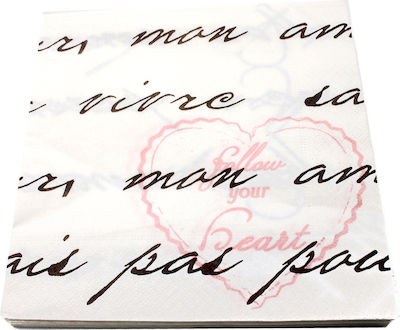 ur, mon am
vivre sa
ur, mon am
ais pas pou
follow
your
Heart